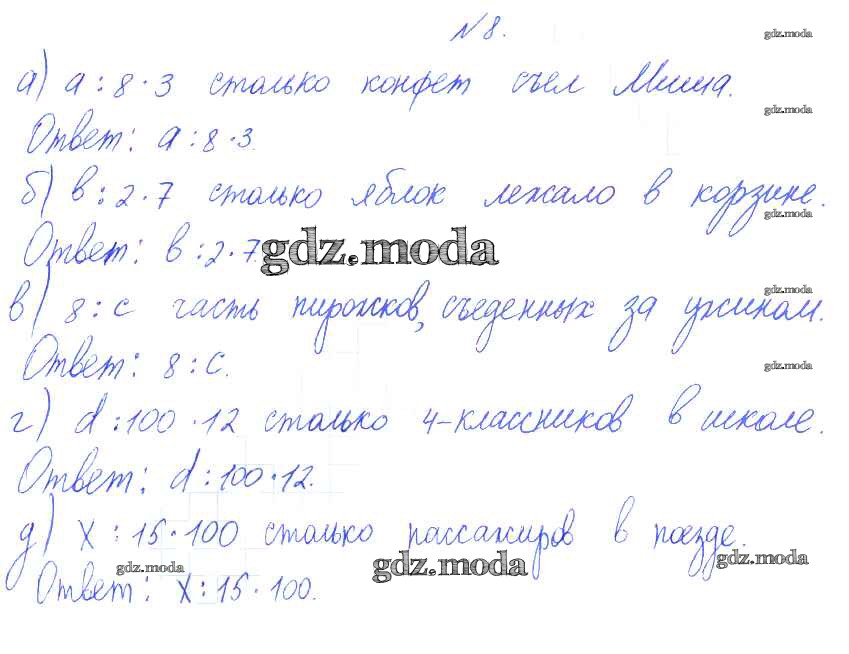 № 8.
gdz.moda
а) a : 8 · 3 столько конфет съел Миша.
gdz.moda
Ответ: a : 8 · 3.
б) в : 2 · 7 столько яблок лежало в корзине.
gdz.moda
Ответ: в : 2 · 7.
gdz.moda
gdz.moda
в) 8 : с часть пирожков, съеденных за ужином.
Ответ: 8 : с.
gdz.moda
г) d : 100 · 12 столько 4-классников в школе.
Ответ: d : 100 · 12.
д) x : 15 · 100 столько пассажиров в поезде.
gdz.moda
gdz.moda
gdz.moda
Ответ: x : 15 · 100.